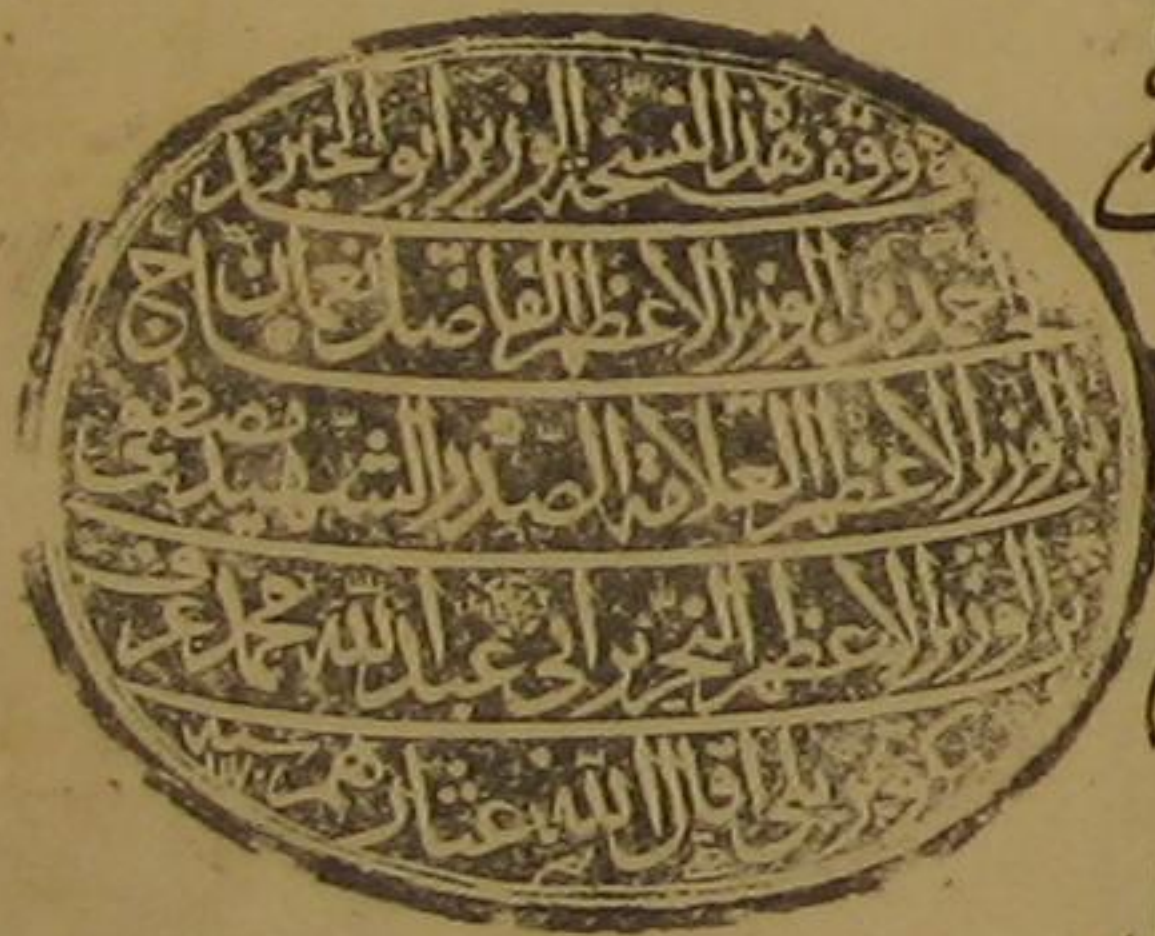 وقف هذا النسخة الوزير ابو الخير الحاج
احمد بن الوزير الاعظم الفاضل نعمان
بن الوزير الاعظم العلامة الصدر الشهيد مصطفى
بن الوزير الاعظم النحرير ابي عبد الله محمد عرف
كوپريلي اقال الله عثارهم